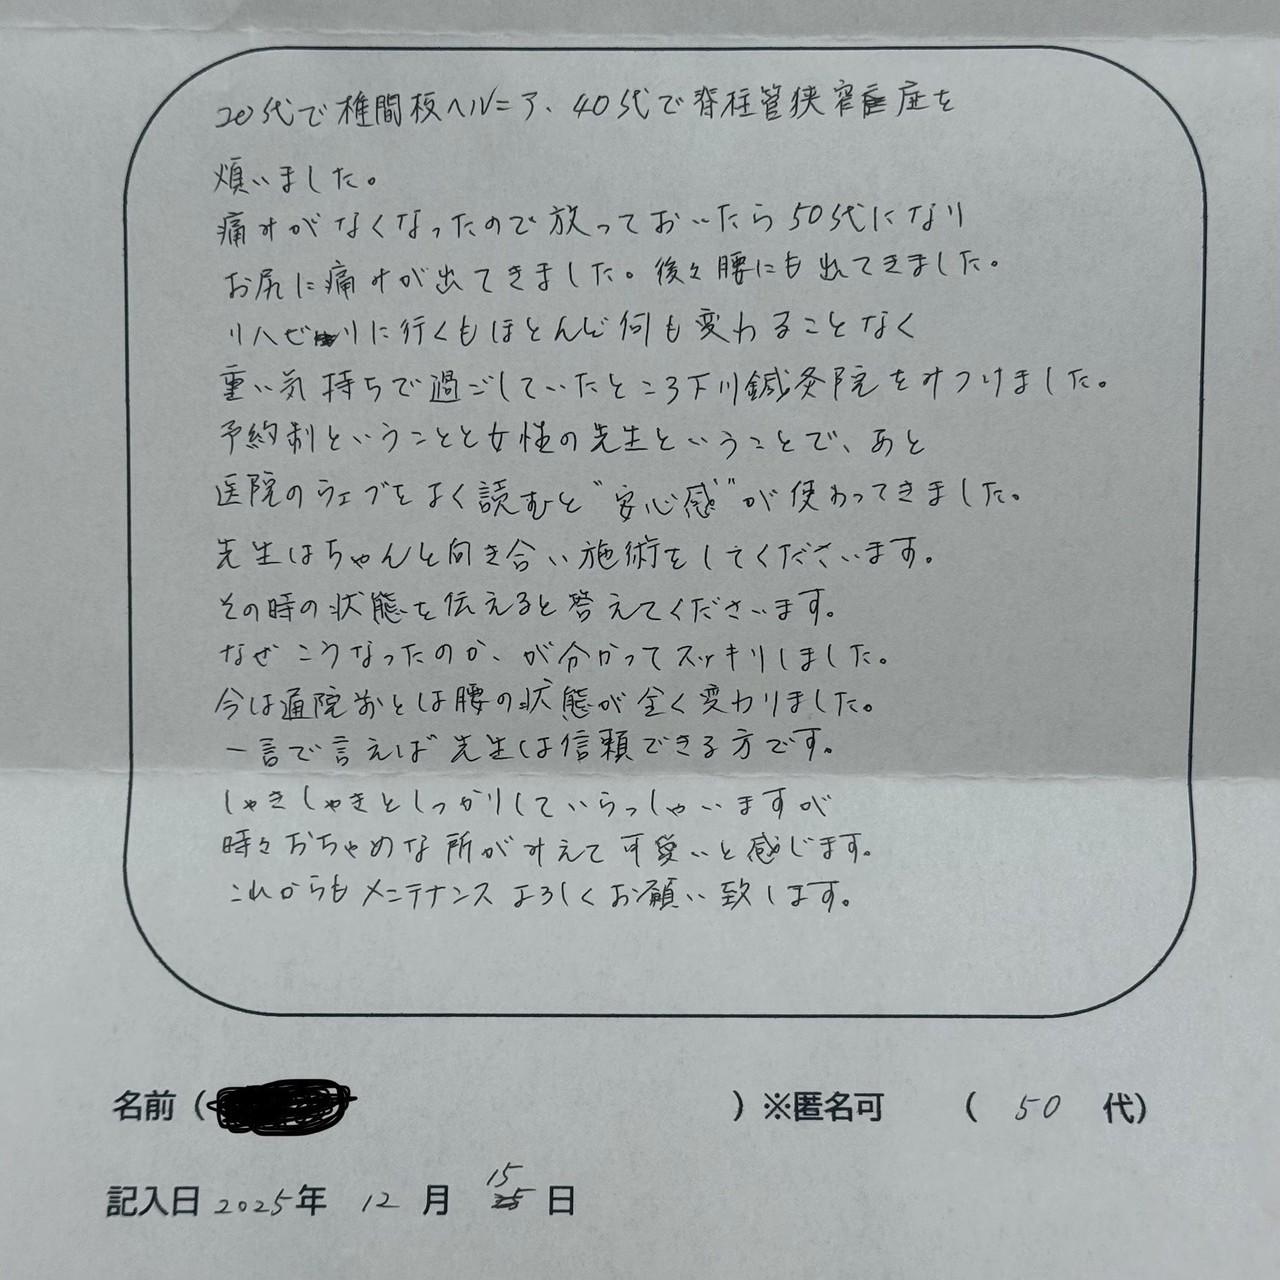 20代で椎間板ヘルニア、40代で脊柱管狭窄症を
煩いました。
痛みがなくなったので放っておいたら50代になり
お尻に痛みが出てきました。後々腰にも出てきました。
リハビリに行くもほとんど何も変わることなく
重い気持ちで過ごしていたところ下川鍼灸院をみつけました。
予約制ということと女性の先生ということで、あと
医院のウェブをよく読むと"安心感"が伝わってきました。
先生はちゃんと向き合い施術をしてくださいます。
その時の状態を伝えると答えてくださいます。
なぜこうなったのか、が分かってスッキリしました。
今は通院前とは腰の状態が全く変わりました。
一言で言えば先生は信頼できる方です。
しゃきしゃきとしっかりしていらっしゃいますが
時々おちゃめな所がみえて可愛いと感じます。
これからもメンテナンスよろしくお願い致します。
名前( )※匿名可 ( 50 代)
記入日 2025年 12月 15日